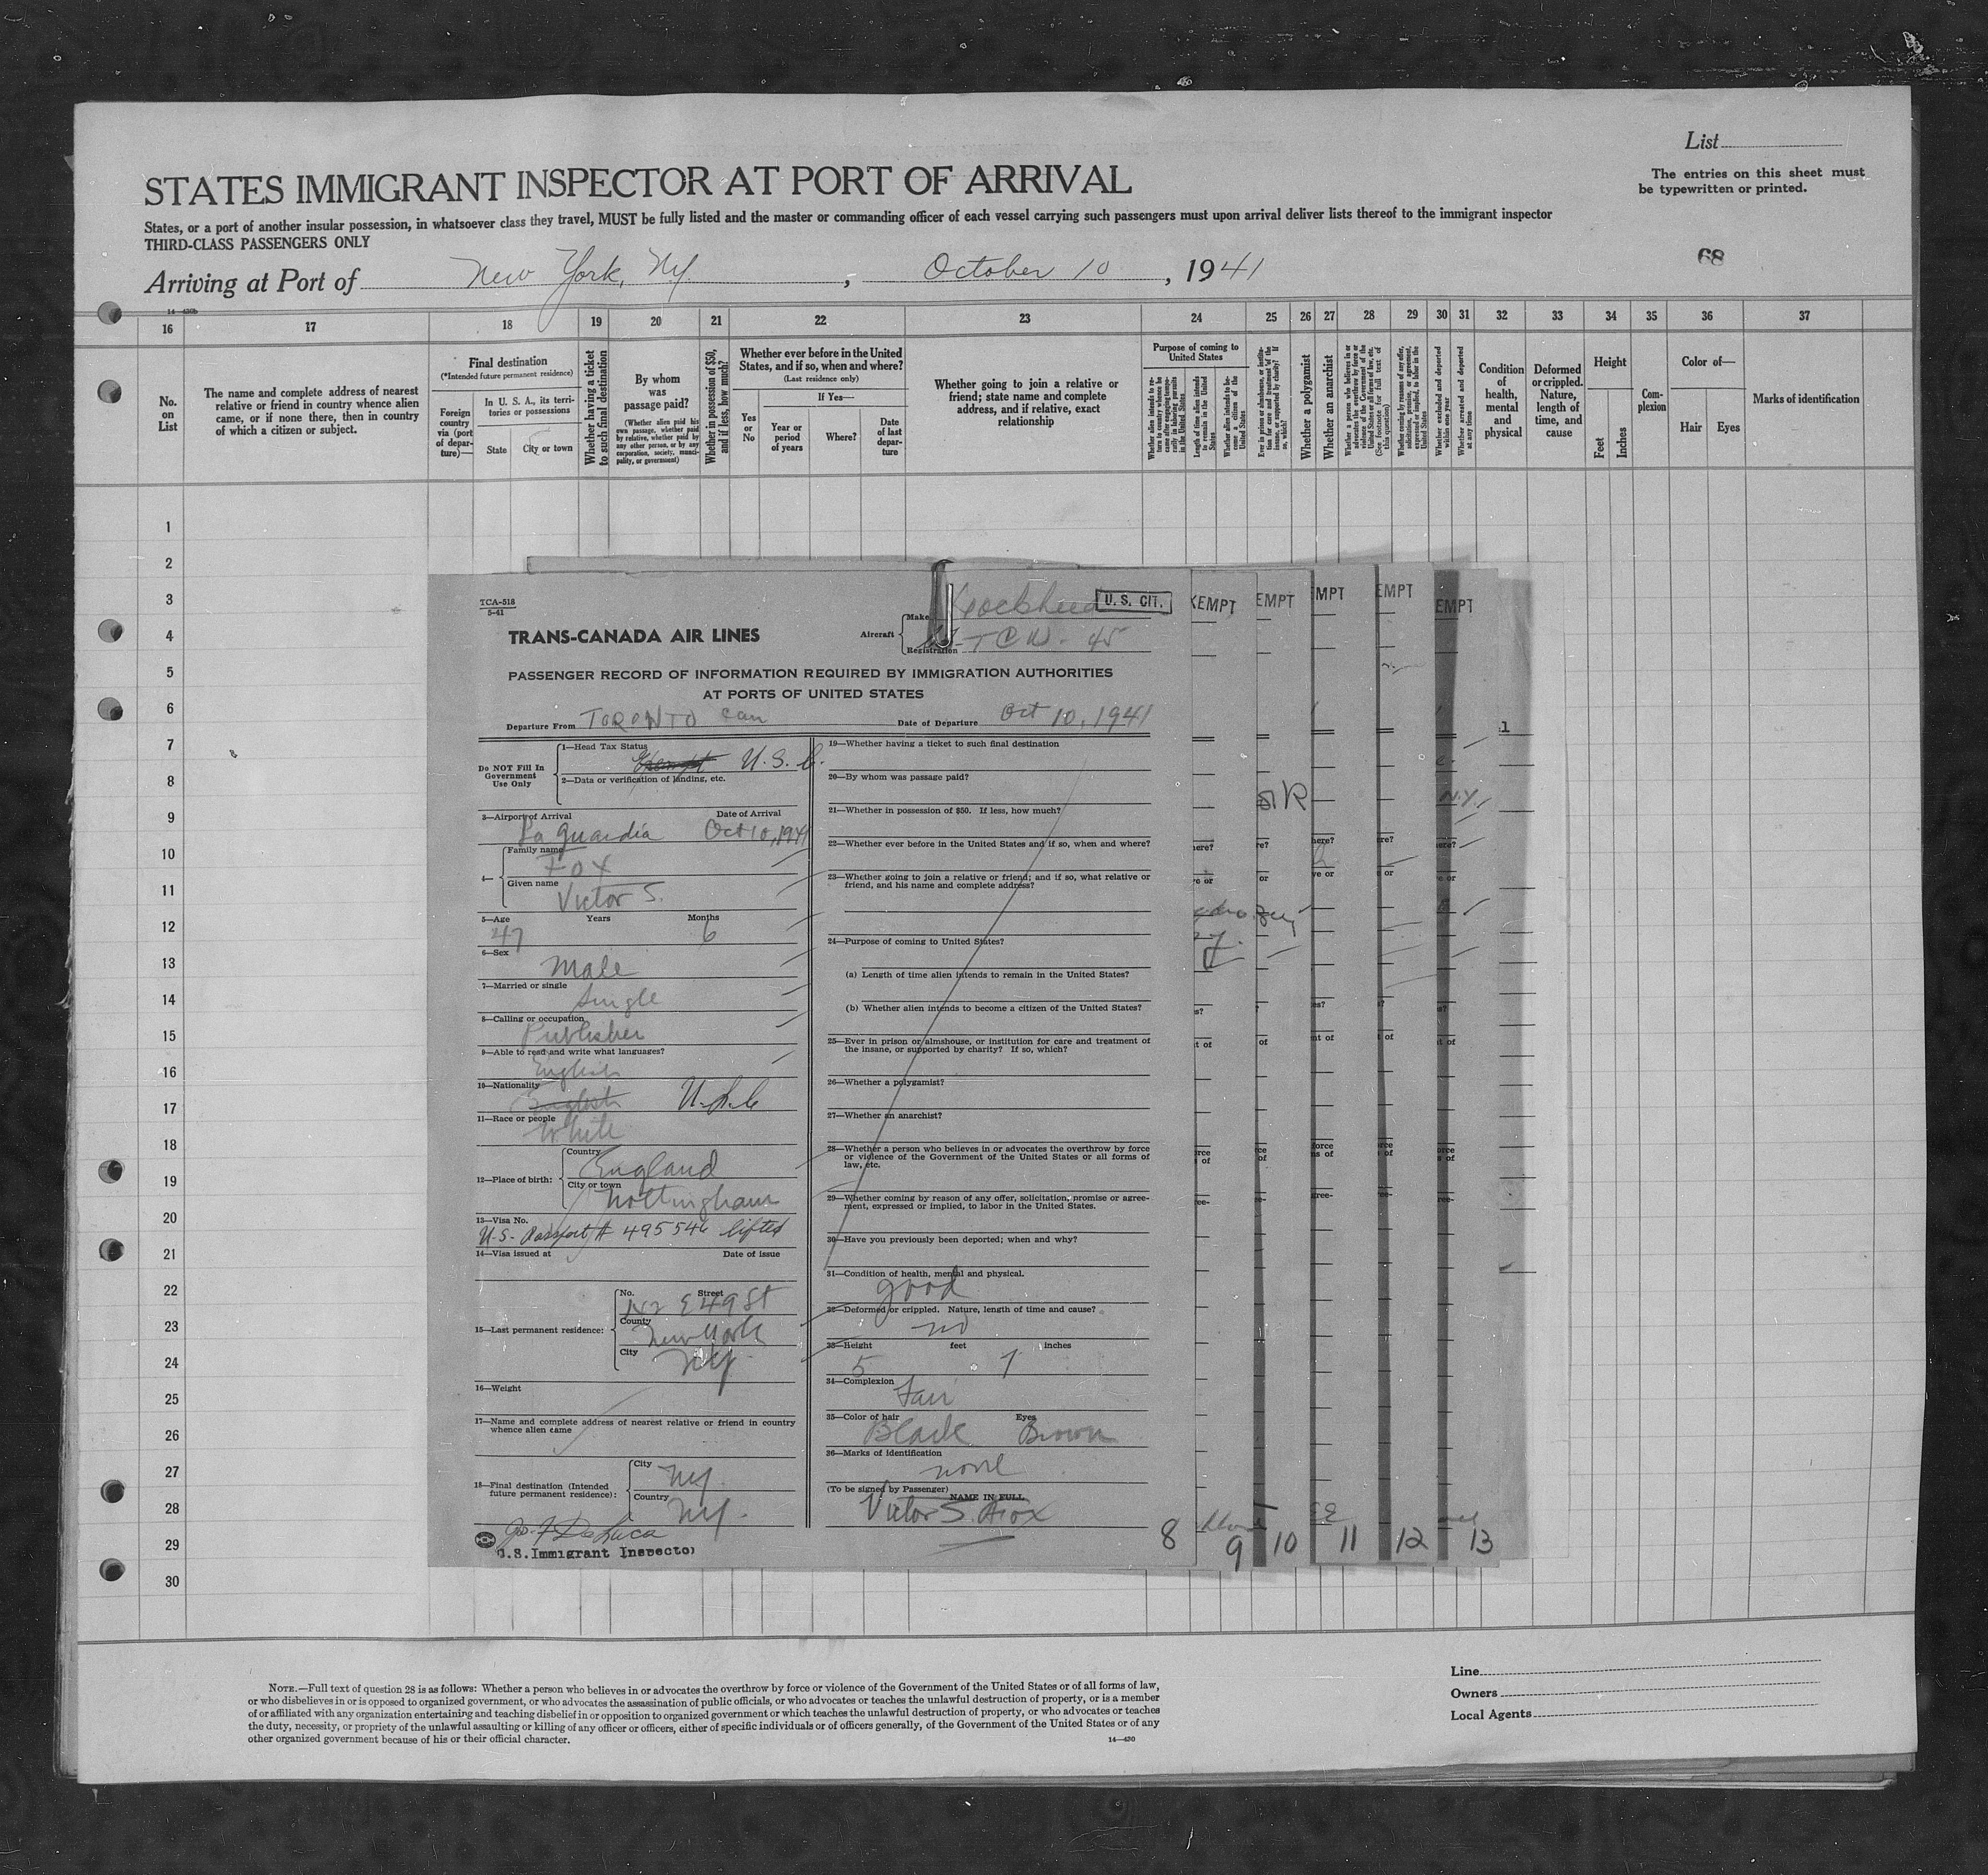 List
The entries on this sheet must
be typewritten or printed.
STATES IMMIGRANT INSPECTOR AT PORT OF ARRIVAL
States, or a port of another insular possession, in whatsoever class they travel, MUST be fully listed and the master or commanding officer of each vessel carrying such passengers must upon arrival deliver lists thereof to the immigrant inspector
THIRD-CLASS PASSENGERS ONLY
68
Arriving at Port of New York, NY, October 10, 1941
16 17 18 19 20 21 22 23 24 25 26 27 28 29 30 31 32 33 34 35 36 37
No. on List
The name and complete address of nearest
relative or friend in country whence alien
came, or if none there, then in country
of which a citizen or subject.
Final destination
(*Intended future permanent residence)
Foreign country via (port of departure)—
In U. S. A., its territories or possessions
State
City or town
Whether having a ticket to such final destination
By whom was passage paid?
(Whether alien paid his own passage, whether paid by relative, whether paid by any other person, or by any corporation, society, municipality, or government)
Whether in possession of $50, and if less, how much?
Whether ever before in the United States, and if so, when and where?
(Last residence only)
Yes or No
If Yes—
Year or period of years
Where?
Date of last departure
Whether going to join a relative or
friend; state name and complete
address, and if relative, exact
relationship
Purpose of coming to United States
Whether a polygamist
Whether an anarchist
Condition of health, mental and physical
Deformed or crippled. Nature, length of time, and cause
Height
Feet
Inches
Complexion
Color of—
Hair
Eyes
Marks of identification
1
2
3
4
5
6
7
8
9
10
11
12
13
14
15
16
17
18
19
20
21
22
23
24
25
26
27
28
29
30
TCA-518
5-41
TRANS-CANADA AIR LINES
Aircraft
Make Lockheed
Registration TCW-45
U. S. CIT.
EMPT EMPT EMPT EMPT
PASSENGER RECORD OF INFORMATION REQUIRED BY IMMIGRATION AUTHORITIES
AT PORTS OF UNITED STATES
Departure From TORONTO Can Date of Departure Oct 10, 1941
Do NOT Fill In Government Use Only
1—Head Tax Status
Exempt U.S.C.
2—Data or verification of landing, etc.
3—Airport of Arrival Date of Arrival
La Guardia Oct 10, 1941
4—
Family name
Fox
Given name
Victor S.
5—Age Years Months
47 6
6—Sex
Male
7—Married or single
Single
8—Calling or occupation
Publisher
9—Able to read and write what languages?
English
10—Nationality
English U.S.C
11—Race or people
White
12—Place of birth:
Country
England
City or town
Nottingham
13—Visa No.
U.S. Passport # 495546 lifted
14—Visa issued at Date of issue
15—Last permanent residence:
No. Street
E 49 St
County
New York
City
NY.
16—Weight
17—Name and complete address of nearest relative or friend in country
whence alien came
18—Final destination (Intended
future permanent residence):
City
NY.
Country
NY.
Jos. F. DeLuca
U.S.Immigrant Inspector
19—Whether having a ticket to such final destination
20—By whom was passage paid?
21—Whether in possession of $50. If less, how much?
22—Whether ever before in the United States and if so, when and where?
23—Whether going to join a relative or friend; and if so, what relative or
friend, and his name and complete address?
24—Purpose of coming to United States?
(a) Length of time alien intends to remain in the United States?
(b) Whether alien intends to become a citizen of the United States?
25—Ever in prison or almshouse, or institution for care and treatment of
the insane, or supported by charity? If so, which?
26—Whether a polygamist?
27—Whether an anarchist?
28—Whether a person who believes in or advocates the overthrow by force
or violence of the Government of the United States or all forms of
law, etc.
29—Whether coming by reason of any offer, solicitation, promise or agree-
ment, expressed or implied, to labor in the United States.
30—Have you previously been deported; when and why?
31—Condition of health, mental and physical.
good
32—Deformed or crippled. Nature, length of time and cause?
no
33—Height feet inches
5 7
34—Complexion
Fair
35—Color of hair Eyes
Black Brown
36—Marks of identification
none
(To be signed by Passenger)
NAME IN FULL
Victor S. Fox
8 9 10 11 12 13
NOTE.—Full text of question 28 is as follows: Whether a person who believes in or advocates the overthrow by force or violence of the Government of the United States or of all forms of law,
or who disbelieves in or is opposed to organized government, or who advocates the assassination of public officials, or who advocates or teaches the unlawful destruction of property, or is a member
of or affiliated with any organization entertaining and teaching disbelief in or opposition to organized government or which teaches the unlawful destruction of property, or who advocates or teaches
the duty, necessity, or propriety of the unlawful assaulting or killing of any officer or officers, either of specific individuals or of officers generally, of the Government of the United States or of any
other organized government because of his or their official character.
14—430
Line
Owners
Local Agents